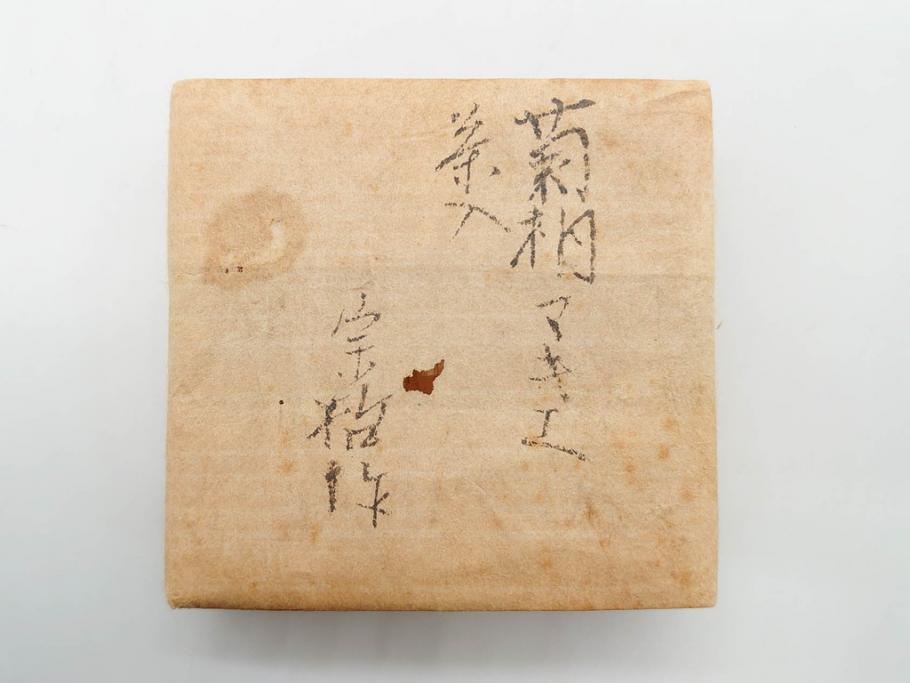 菊桐マキエ
茶入
宗哲作